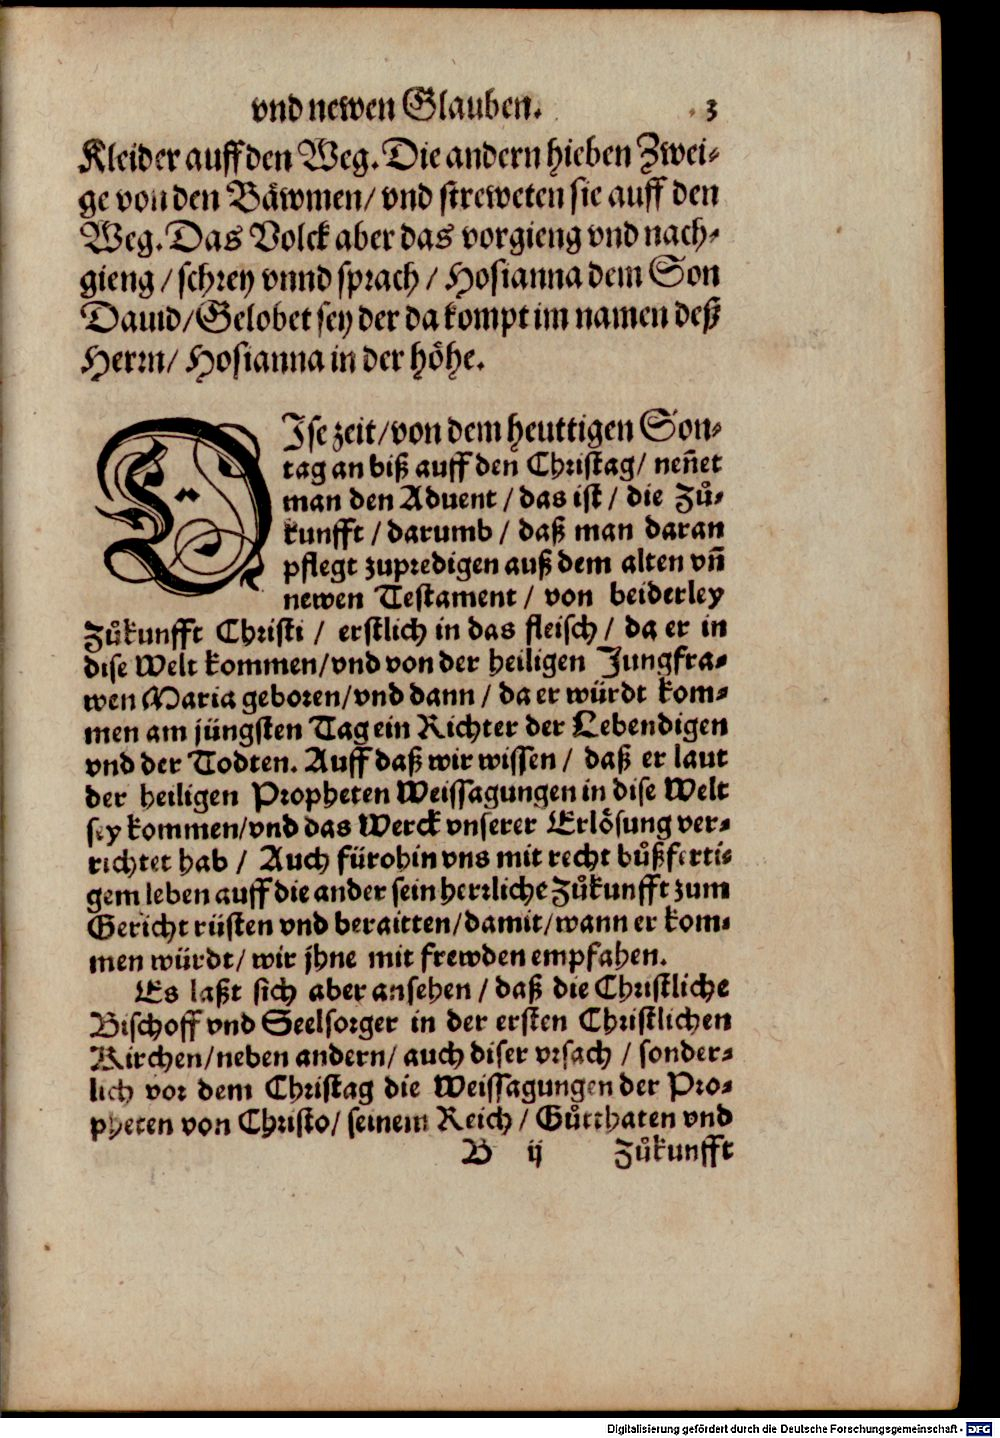 vnd newen Glauben. 3
Kleider auff den Weg. Die andern hieben Zwei-
ge von den Bäwmen/ vnd streweten sie auff den
Weg. Das Volck aber das vorgieng vnd nach-
gieng / schrey vnnd sprach / Hosianna dem Son
Dauid/ Gelobet sey der da kompt im namen deß
Herrn/ Hosianna in der höhe.
DIse zeit/ von dem heuttigen Son-
tag an biß auff den Christag/ neñet
man den Aduent / das ist / die Zuͦ-
kunfft / darumb / daß man daran
pflegt zupredigen auß dem alten vñ
newen Testament / von beiderley
Zuͦkunfft Christi / erstlich in das fleisch / da er in
dise Welt kommen/ vnd von der heiligen Jungfra-
wen Maria geboren/ vnd dann / da er würdt kom-
men am jüngsten Tag ein Richter der Lebendigen
vnd der Todten. Auff daß wir wissen / daß er laut
der heiligen Propheten Weissagungen in dise Welt
sey kommen/ vnd das Werck vnserer Erlösung ver-
richtet hab / Auch fürohin vns mit recht buͦßferti-
gem leben auff die ander sein herrliche Zuͦkunfft zum
Gericht rüsten vnd beraitten/ damit/ wann er kom-
men würdt/ wir jhne mit frewden empfahen.
Es laßt sich aber ansehen / daß die Christliche
Bischoff vnd Seelsorger in der ersten Christlichen
Kirchen/ neben andern/ auch diser vrsach / sonder-
lich vor dem Christag die Weissagungen der Pro-
pheten von Christo/ seinem Reich / Guͦtthaten vnd
B ij Zuͦkunfft
Digitalisierung gefördert durch die Deutsche Forschungsgemeinschaft - DFG